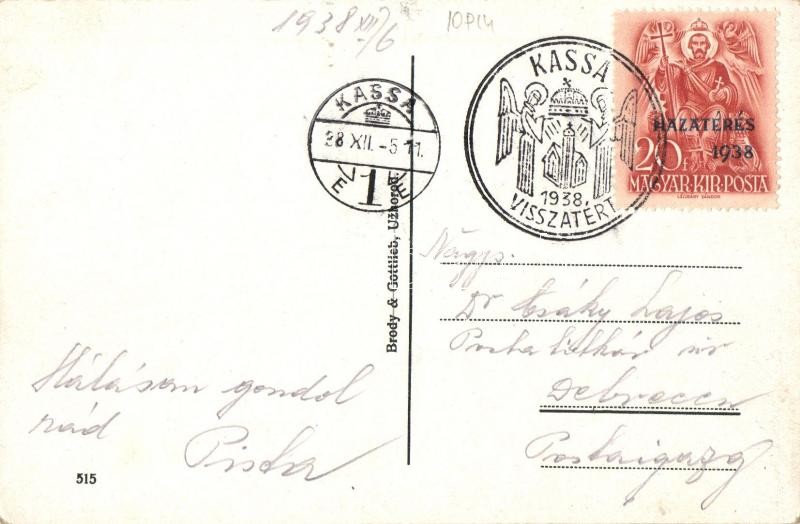 1938 XII/6
KASSA
38 XII. -5 11.
1
KASSA
1938.
VISSZATÉRT
HAZATÉRÉS
1938
20 f
MAGYAR·KIR·POSTA
LÉGRÁDY SÁNDOR
Brody & Gottlieb, Užhorod.
Nágys.
Dr Csáky Lajos
Posta titkár úr
Debrecen
Postaigazg
Hálásan gondol
rád
Pista
515